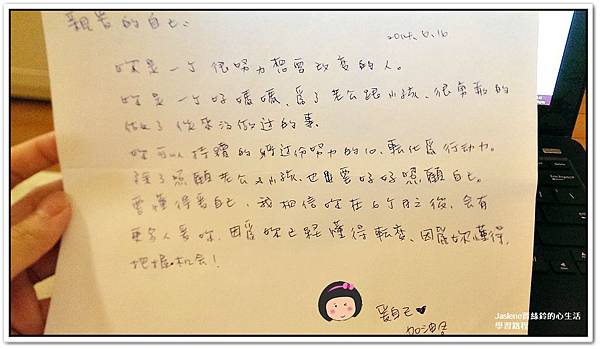 親愛的自己:
2014.6.16
妳是一个很努力想要改变的人。
妳是一个好媽媽,為了老公跟小孩,很勇敢的
做了從來沒做过的事。
妳可以持續的將这份努力的心,転化為行动力。
除了照顧老公&小孩,也要好好照顧自己。
要懂得愛自己,我相信妳在6个月之後,会有
更多人愛妳,因為妳已経懂得転变、因為妳懂得,
把握机会!
愛自己♥
加油!
Jaslene賈絲鈴的心生活
學習路程